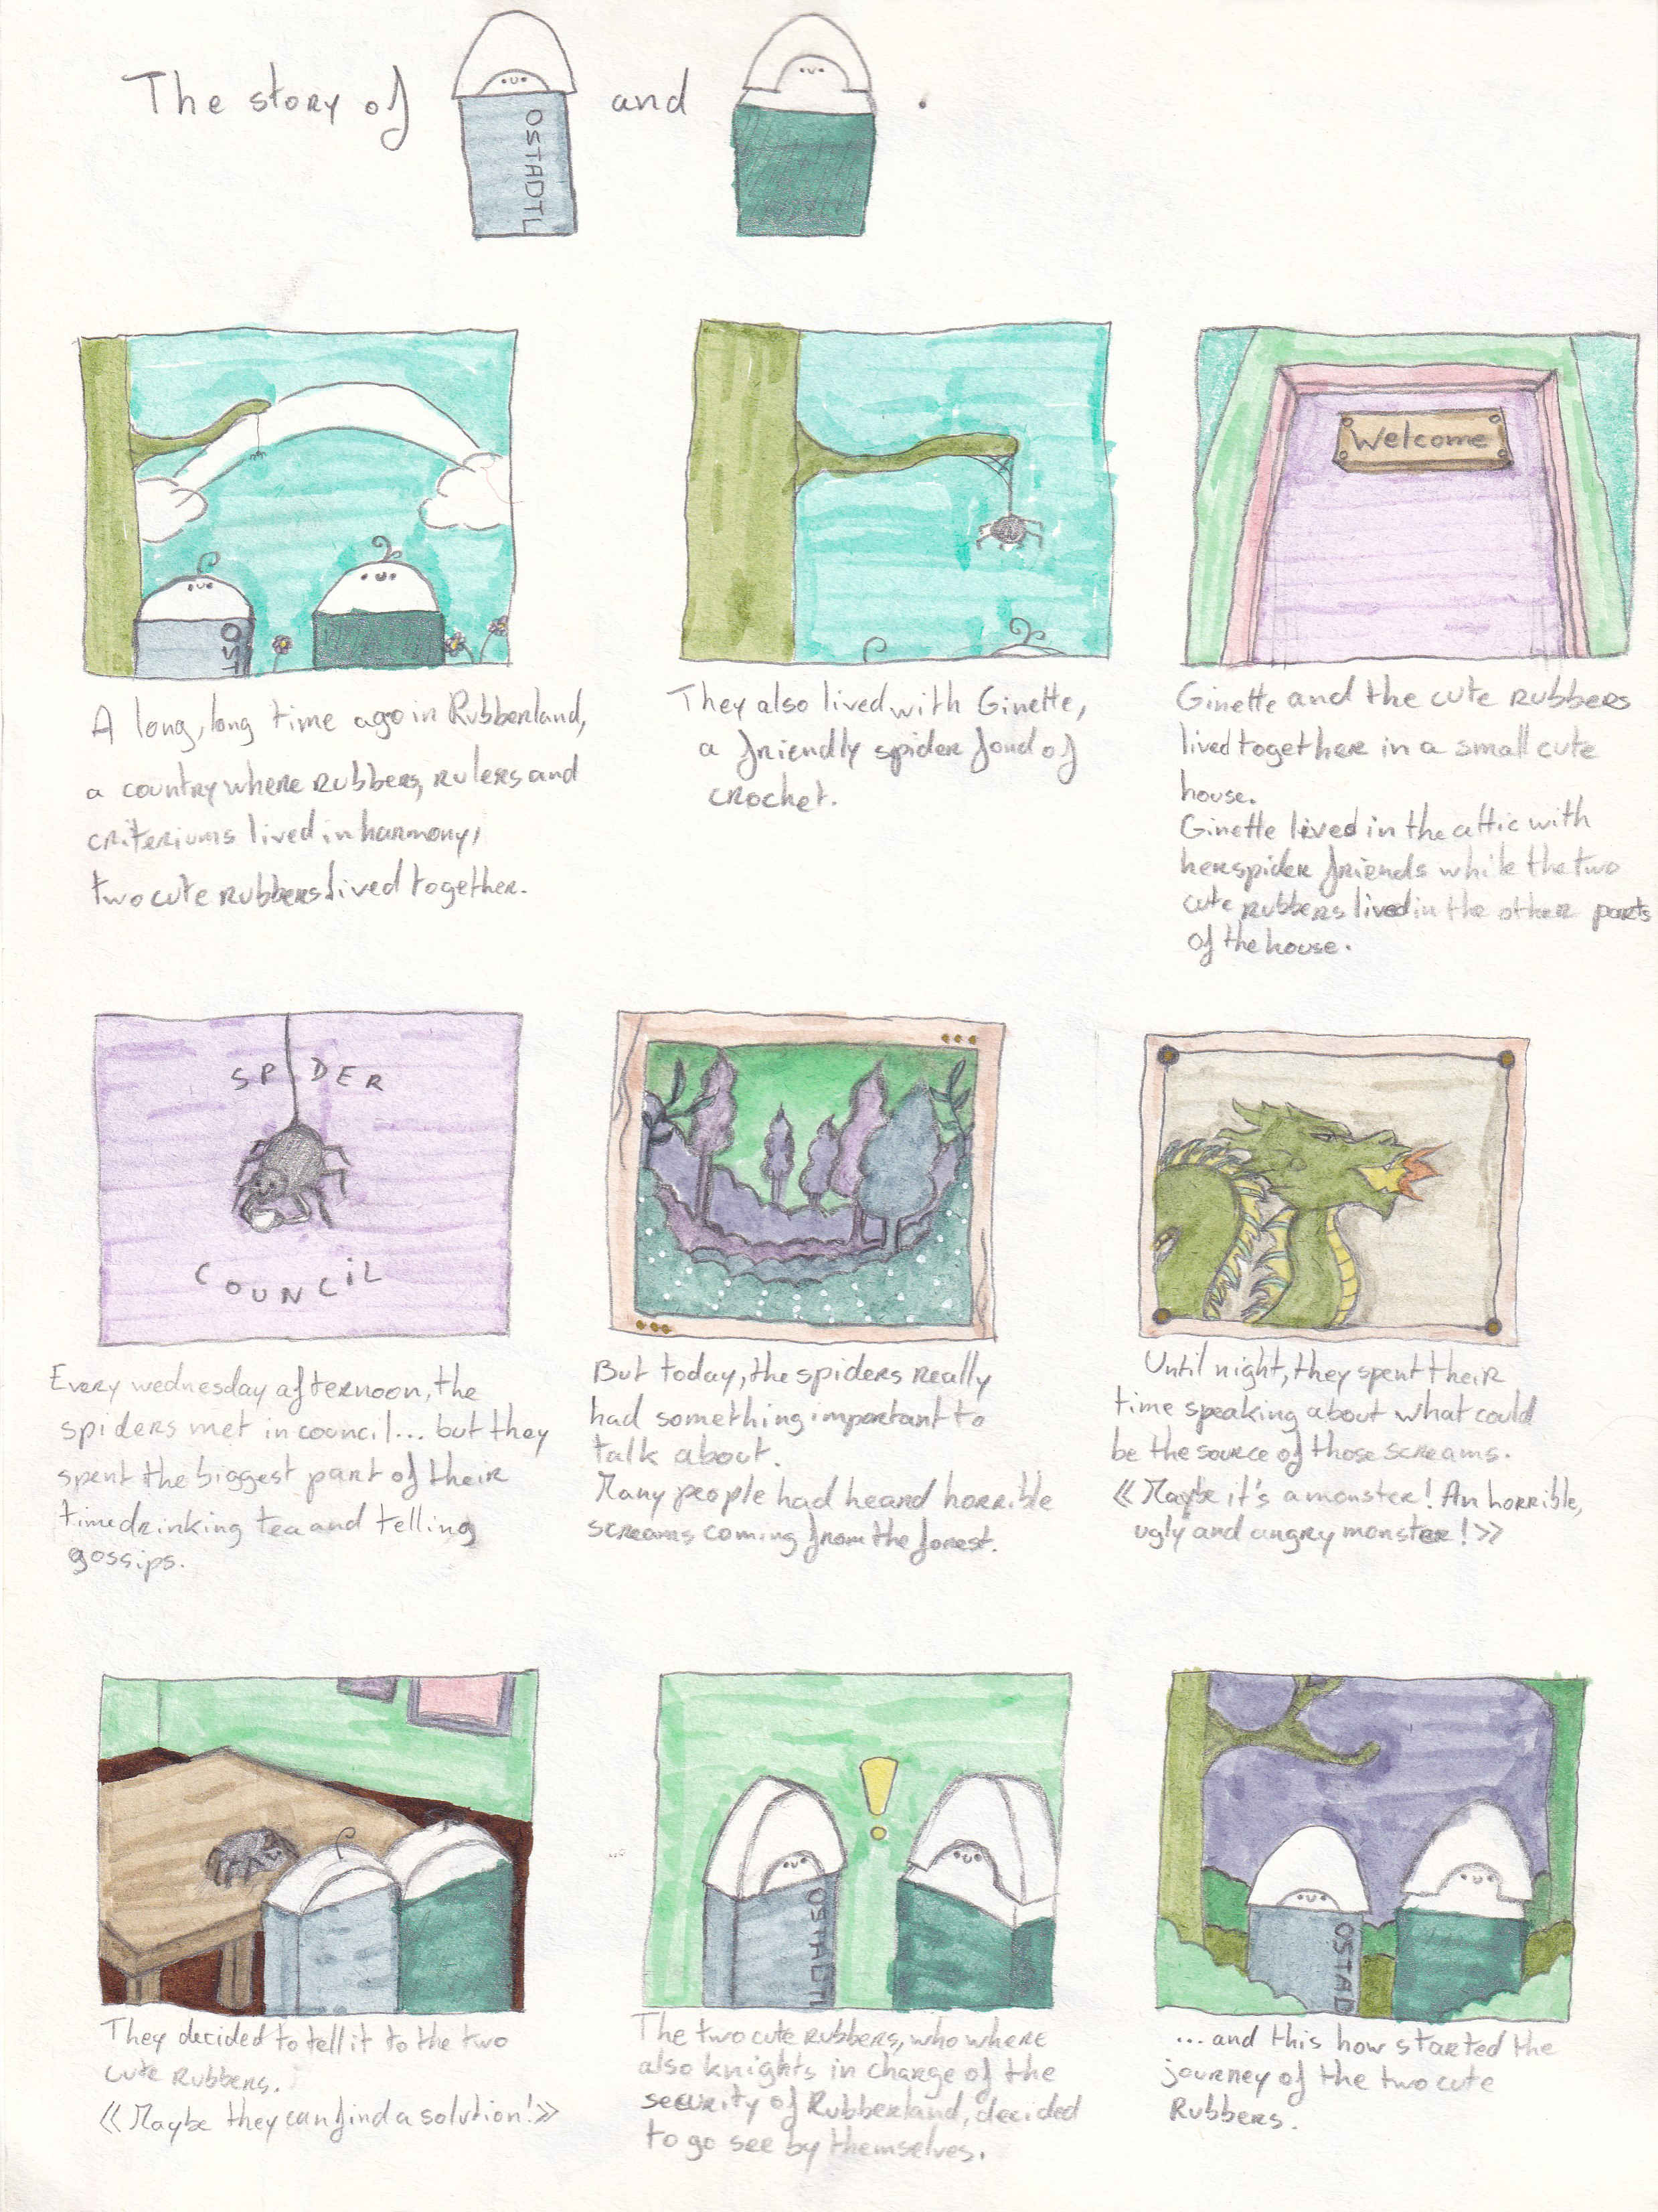 The story of and .
OSTADTL
OST
A long, long time ago in Rubberland,
a country where rubbers, rulers and
criteriums lived in harmony,
two cute rubbers lived together.
They also lived with Ginette,
a friendly spider fond of
crochet.
Welcome
Ginette and the cute rubbers
lived together in a small cute
house.
Ginette lived in the attic with
her spider friends while the two
cute rubbers lived in the other parts
of the house.
SPIDER
COUNCiL
Every wednesday afternoon, the
spiders met in council... but they
spent the biggest part of their
time drinking tea and telling
gossips.
But today, the spiders really
had something important to
talk about.
Many people had heard horrible
screams coming from the forest.
Until night, they spent their
time speaking about what could
be the source of those screams.
« Maybe it's a monster! An horrible,
ugly and angry monster! »
They decided to tell it to the two
cute rubbers.
« Maybe they can find a solution! »
OSTADT
The two cute rubbers, who where
also knights in charge of the
security of Rubberland, decided
to go see by themselves.
OSTAD
... and this how started the
journey of the two cute
Rubbers.